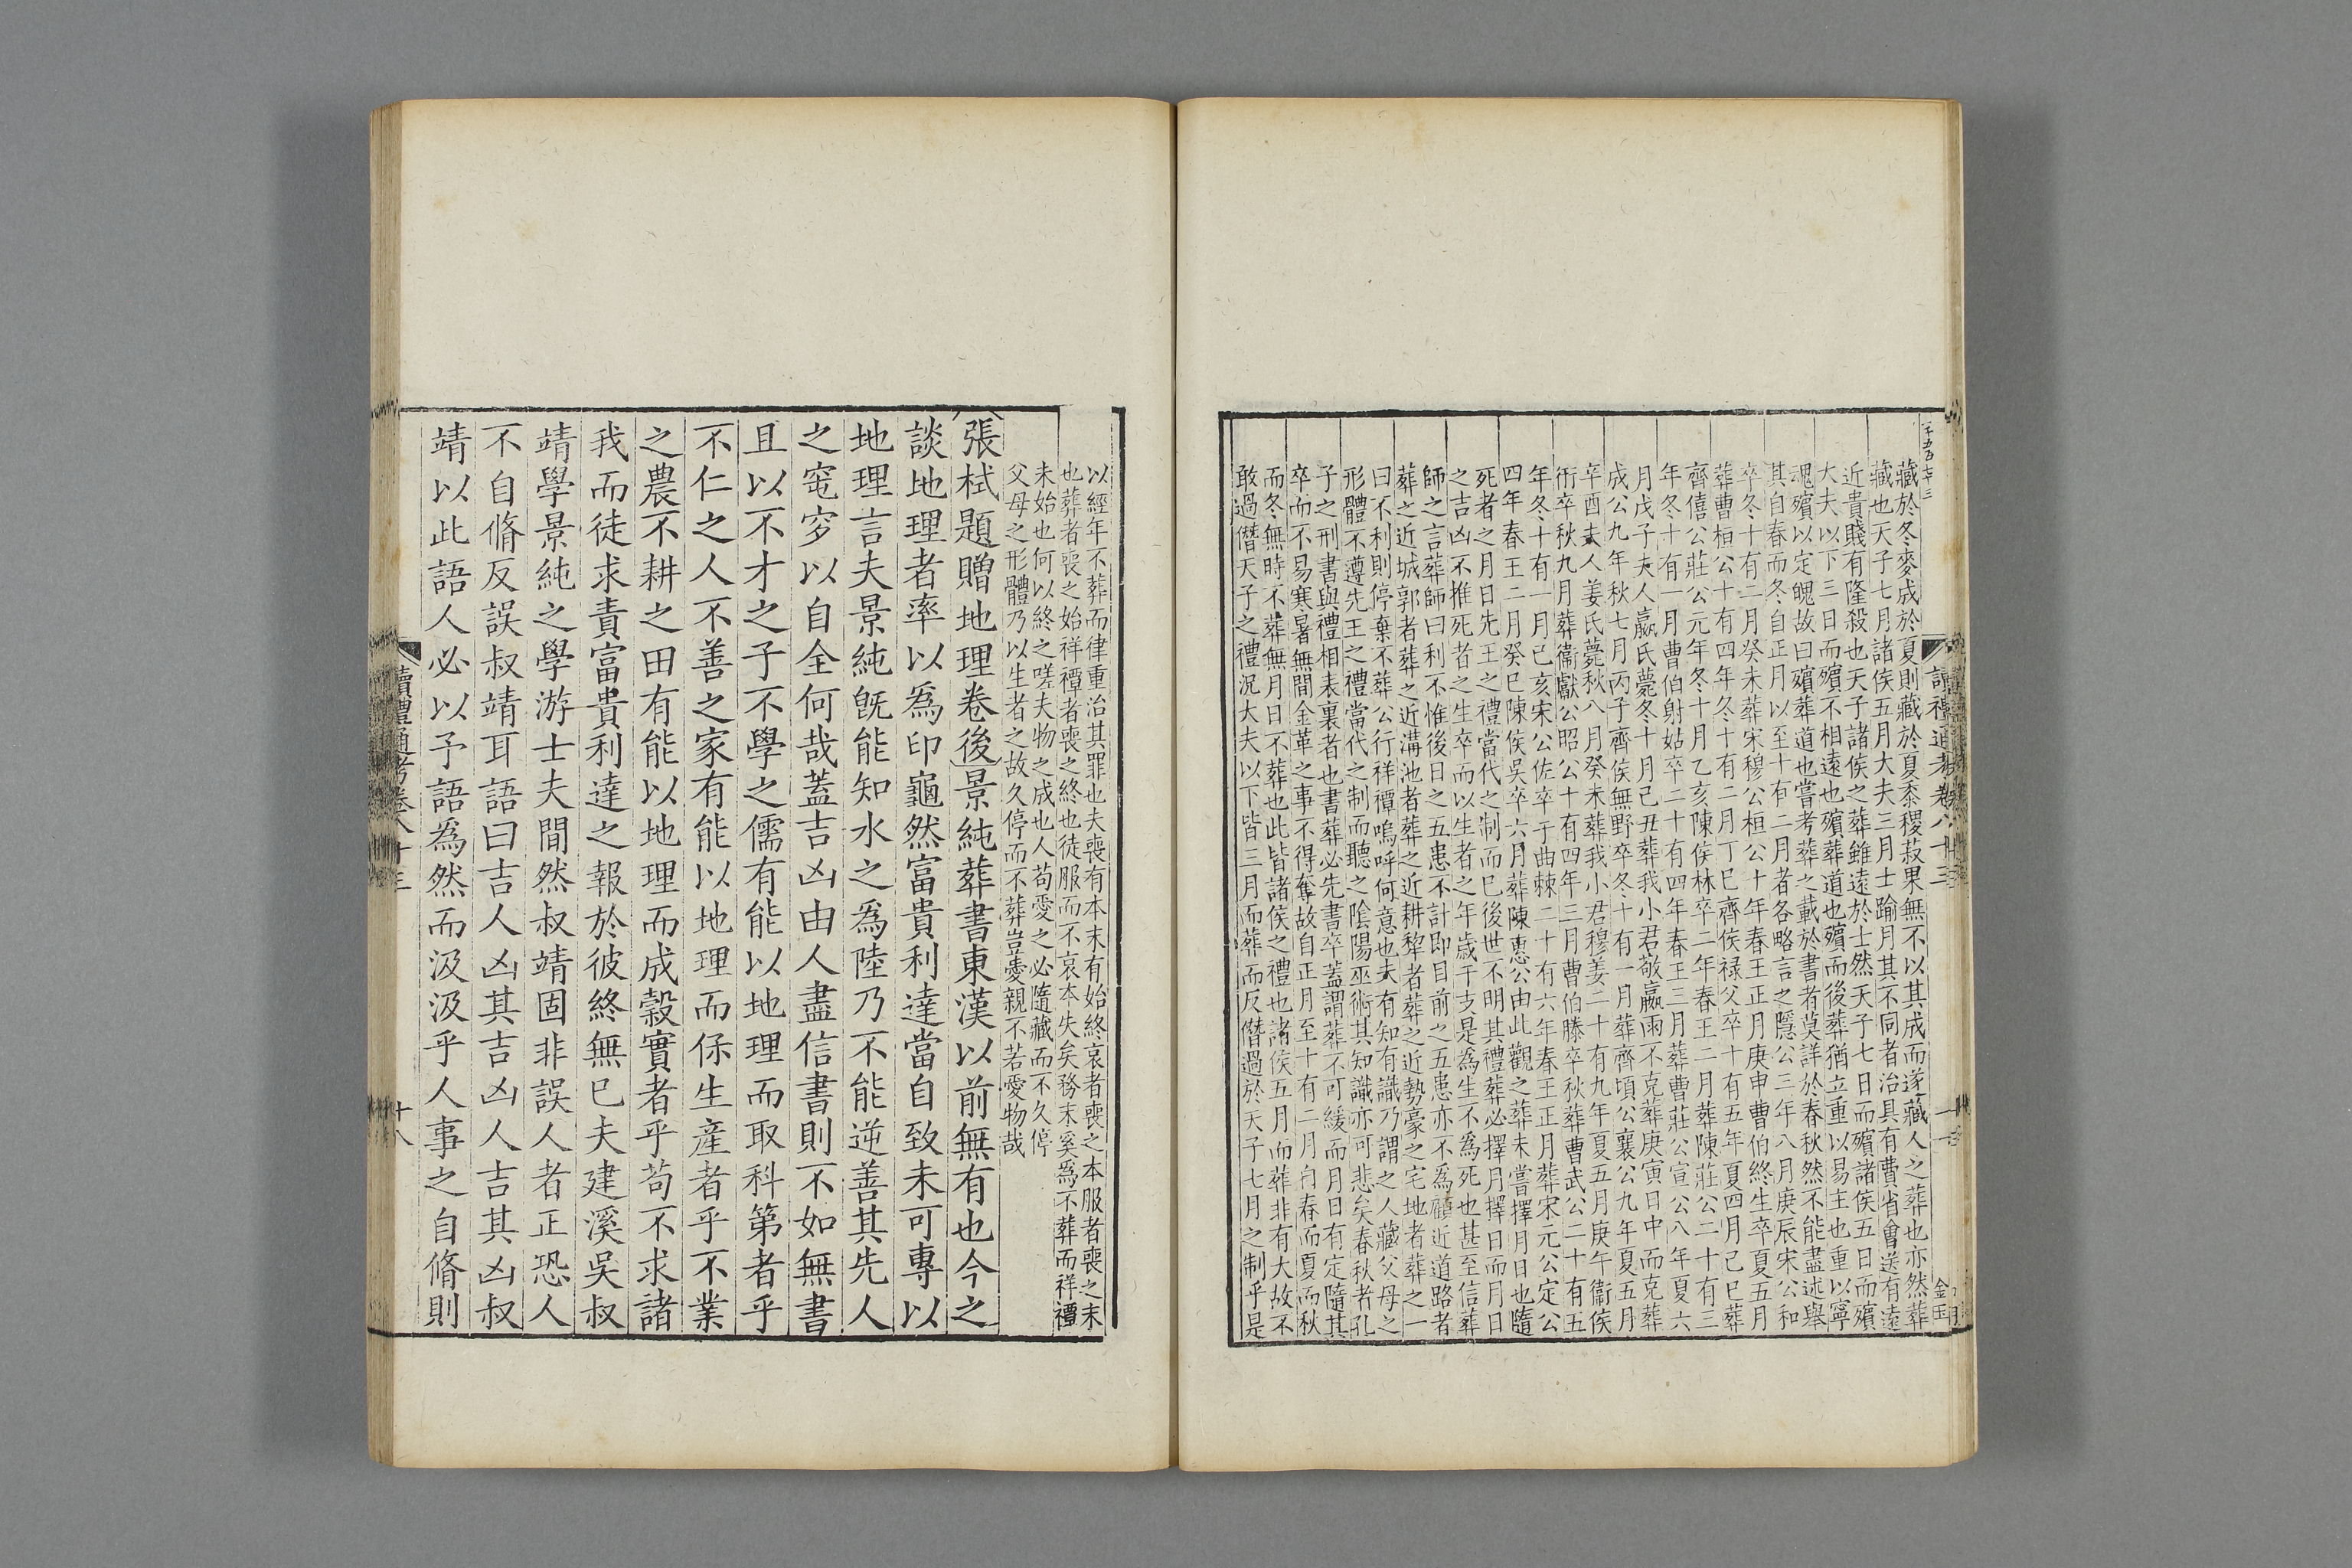 藏於冬麥成於夏則藏於夏黍稷菽果無不以其成而遂藏人之葬也亦然葬
藏也天子七月諸侯五月大夫三月士踰月其不同者治具有費省會送有遠
近貴賤有隆殺也天子諸侯之葬雖遠於士然天子七日而殯諸侯五日而殯
大夫以下三日而殯不相遠也殯葬道也殯而後葬猶立重以易主也重以寧
魂殯以定魄故曰殯葬道也嘗考葬之載於書者莫詳於春秋然不能盡述舉
其自春而冬自正月以至十有二月者各略言之隱公三年八月庚辰宋公和
卒冬十有二月癸未葬宋穆公桓公十年春王正月庚申曹伯終生卒夏五月
葬曹桓公十有四年冬十有二月丁巳齊侯祿父卒十有五年夏四月己巳葬
齊僖公莊公元年冬十月乙亥陳侯林卒二年春王二月葬陳莊公二十有三
年冬十有一月曹伯射姑卒二十有四年春王三月葬曹莊公宣公八年夏六
月戊子夫人嬴氏薨冬十月己丑葬我小君敬嬴雨不克葬庚寅日中而克葬
成公九年秋七月丙子齊侯無野卒冬十有一月葬齊頃公襄公九年夏五月
辛酉夫人姜氏薨秋八月癸未葬我小君穆姜二十有九年夏五月庚午衞侯
衎卒秋九月葬衞獻公昭公十有四年三月曹伯滕卒秋葬曹武公二十有五
年冬十有一月己亥宋公佐卒于曲棘二十有六年春王正月葬宋元公定公
四年春王二月癸巳陳侯吳卒六月葬陳惠公由此觀之葬未嘗擇月日也隨
死者之月日先王之禮當代之制而已後世不明其禮葬必擇月擇日而月日
之吉凶不推死者之生卒而以生者之年歲干支是為生不為死也甚至信葬
師之言葬師曰利不惟後日之五患不計即目前之五患亦不為顧近道路者
葬之近城郭者葬之近溝池者葬之近耕犂者葬之近勢豪之宅地者葬之一
曰不利則停棄不葬公行祥禫嗚呼何意也夫有知有識乃謂之人藏父母之
形體不遵先王之禮當代之制而聽之陰陽巫術其知識亦可悲矣春秋者孔
子之刑書與禮相表裏者也書葬必先書卒蓋謂葬不可緩而月日有定隨其
卒而不易寒暑無間金革之事不得奪故自正月至十有二月自春而夏而秋
而冬無時不葬無月日不葬也此皆諸侯之禮也諸侯五月而葬非有大故不
敢過僭天子之禮況大夫以下皆三月而葬而反僭過於天子七月之制乎是
讀禮通考卷八十三
以經年不葬而律重治其罪也夫喪有本末有始終哀者喪之本服者喪之末
也葬者喪之始祥禫者喪之終也徒服而不哀本失矣務末奚爲不葬而祥禫
未始也何以終之嗟夫物之成也人苟愛之必隨藏而不久停
父母之形體乃以生者之故久停而不葬豈愛親不若愛物哉
張栻題贈地理卷後景純葬書東漢以前無有也今之
談地理者率以爲印龜然富貴利達當自致未可專以
地理言夫景純旣能知水之爲陸乃不能逆善其先人
之窀穸以自全何哉蓋吉凶由人盡信書則不如無書
且以不才之子不學之儒有能以地理而取科第者乎
不仁之人不善之家有能以地理而保生産者乎不業
之農不耕之田有能以地理而成穀實者乎苟不求諸
我而徒求責富貴利達之報於彼終無已夫建溪吳叔
靖學景純之學游士夫間然叔靖固非誤人者正恐人
不自脩反誤叔靖耳語曰吉人凶其吉凶人吉其凶叔
靖以此語人必以予語爲然而汲汲乎人事之自脩則
讀禮通考卷八十三
十八